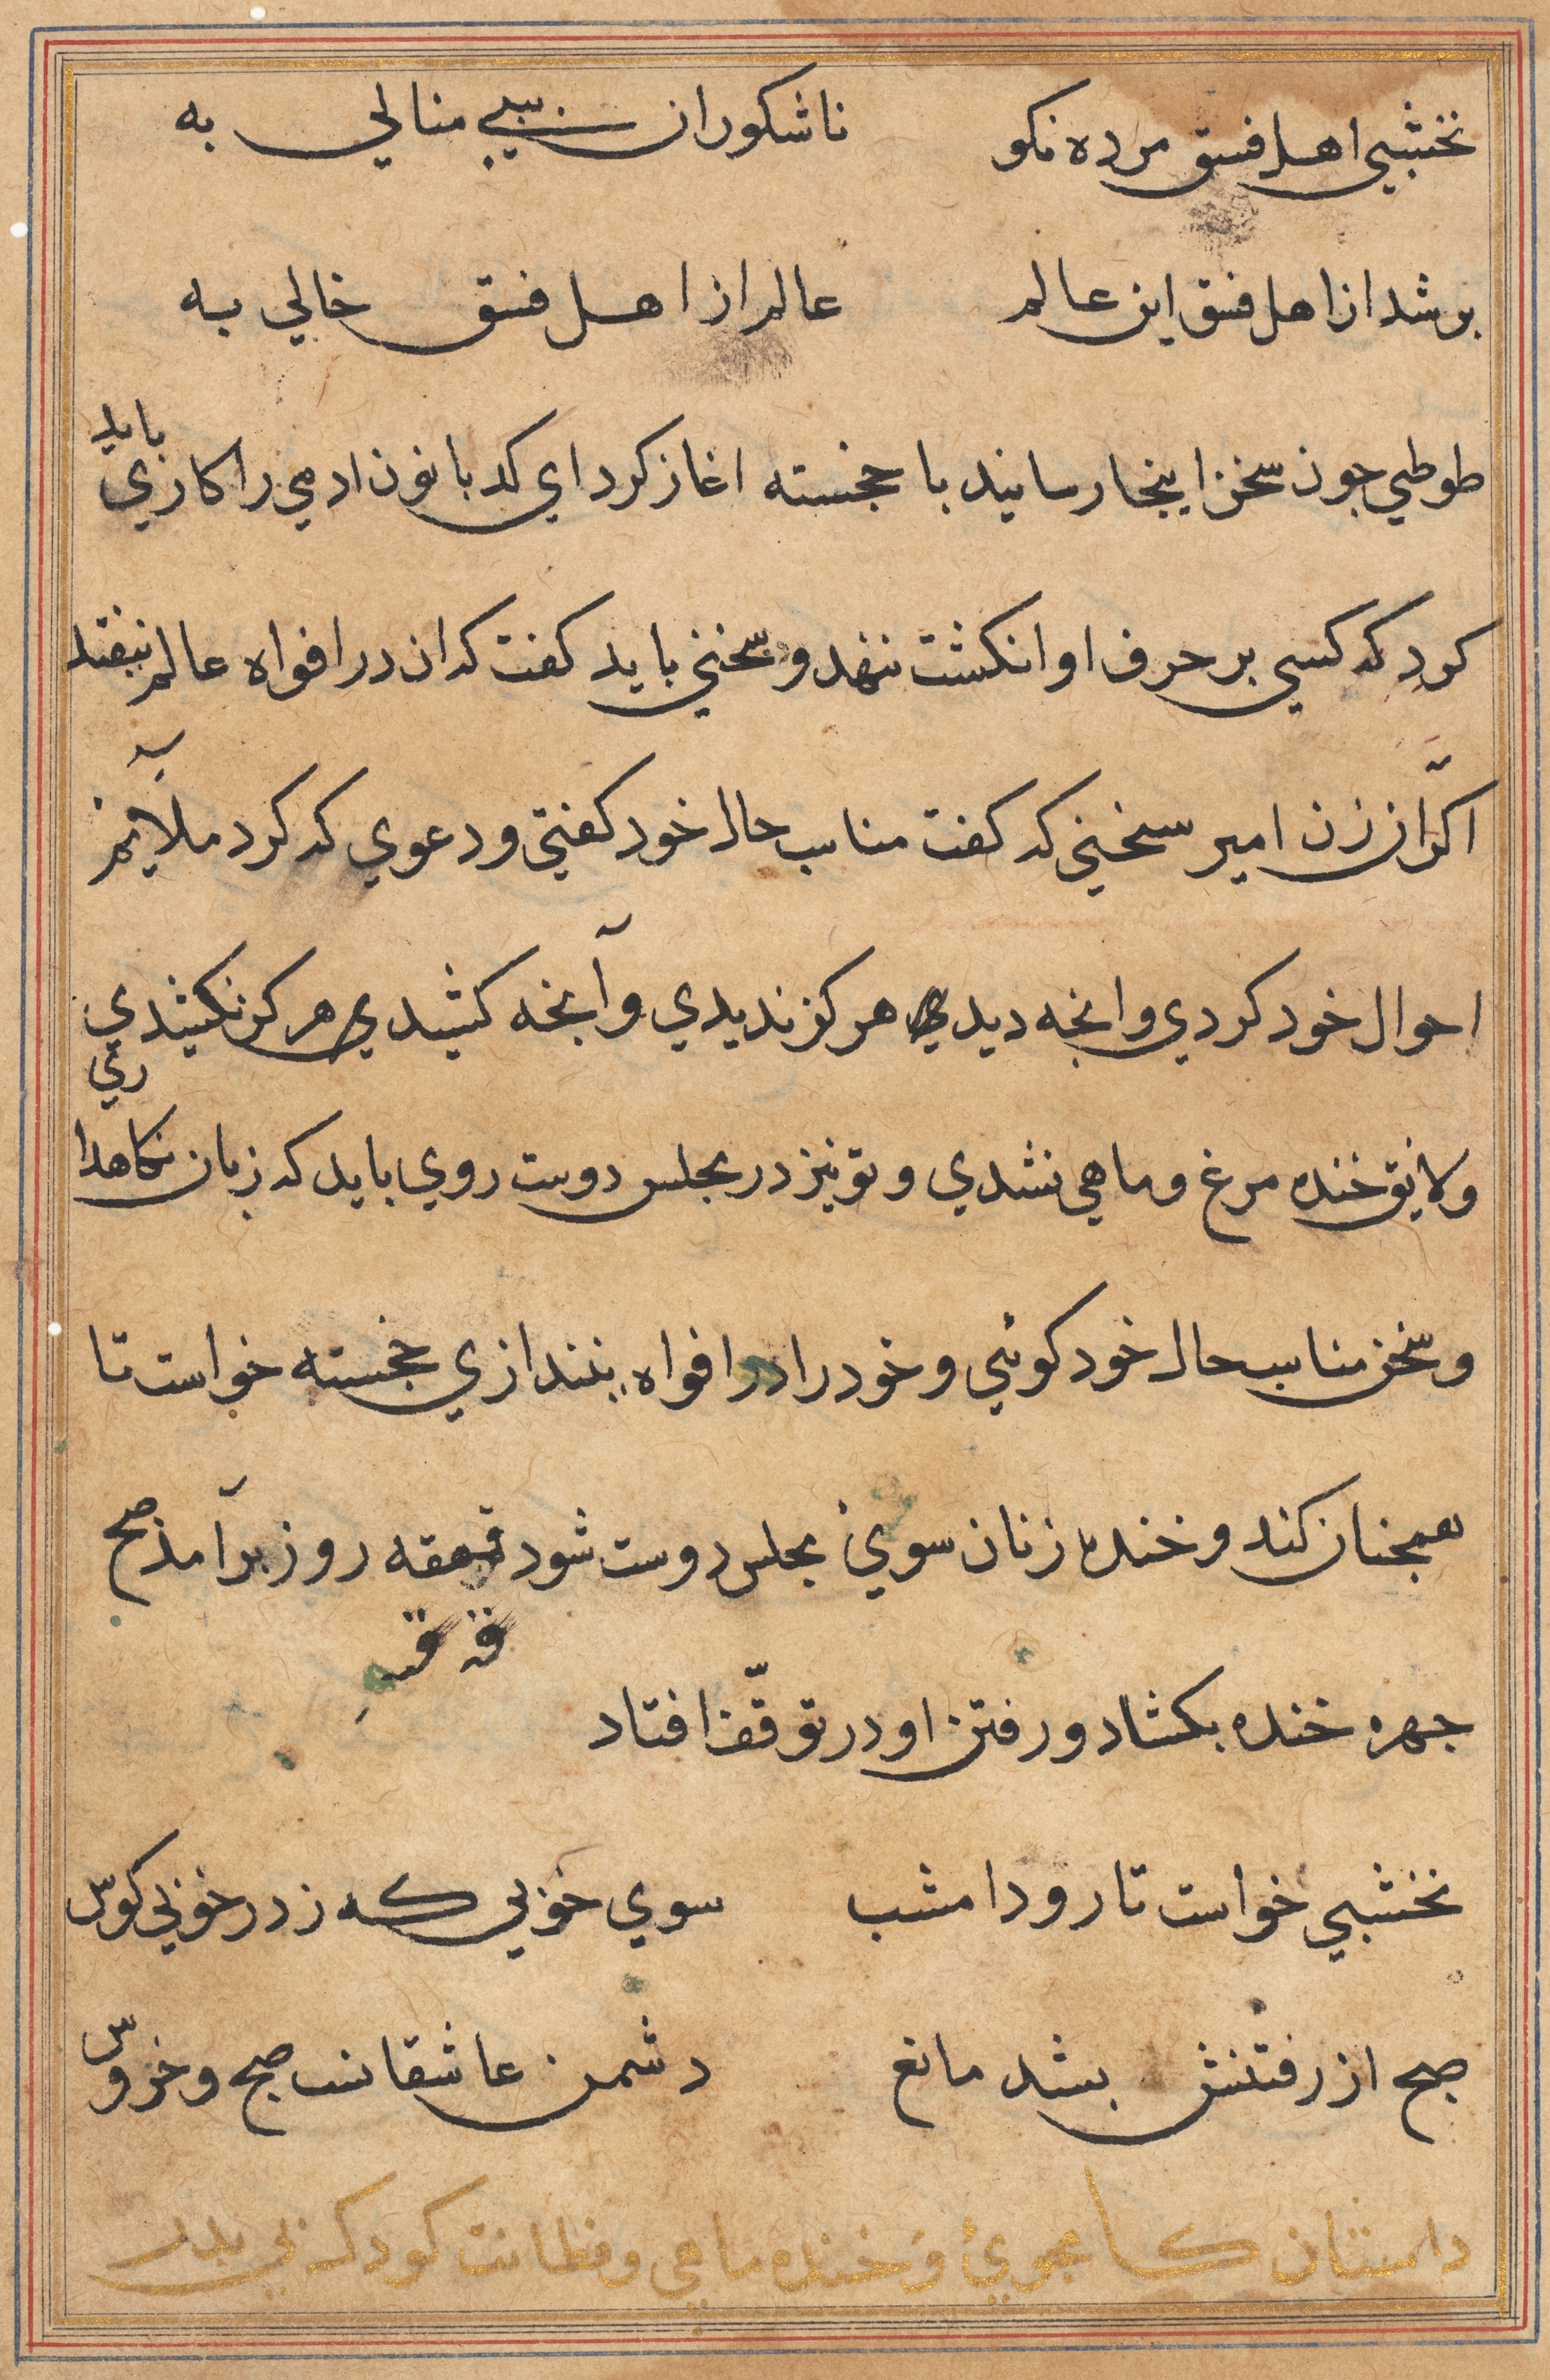 نخشبي اهل فسق مرده نكو ناشكوران زبيبي منالي به
پر شد از اهل فسق اين عالم عالم از اهل فسق خالي به
طوطي جون سخن اينجا رسانيد با خجسته اغاز كرد اي كدبانون ادمي را كاري بايد
كرد كه كسي بر حرف او انكشت ننهد و سخني بايد كفت كه ان در افواه عالم نيفتد
اكر ان زن امير سخني كه كفت مناسب حال خود كفتي و دعوي كه كرد ملايم
احوال خود كردي وانجه ديدي هركز نديدي وآنجه كشيدي هركز نكشيدي
ولايق خنده مرغ و ماهي نشدي و تو نيز در مجلس دوست روي بايد كه زبان نكاهداري
و سخن مناسب حال خود كوئي و خود را در افواه نيندازي خجسته خواست تا
همجنان كند و خنده زنان سوي مجلس دوست شود قهقهه روز برآمد صبح
جهره خنده بكشاد و رفتن او در توقّف افتاد
نخشبي خواست تا رود امشب سوي خوبي كه زد در خوبي كوس
صبح از رفتنش بشد مانع دشمن عاشقانست صبح و خروس
داستان كامجوي و خنده ماهي و فطانت كودك بي پدر